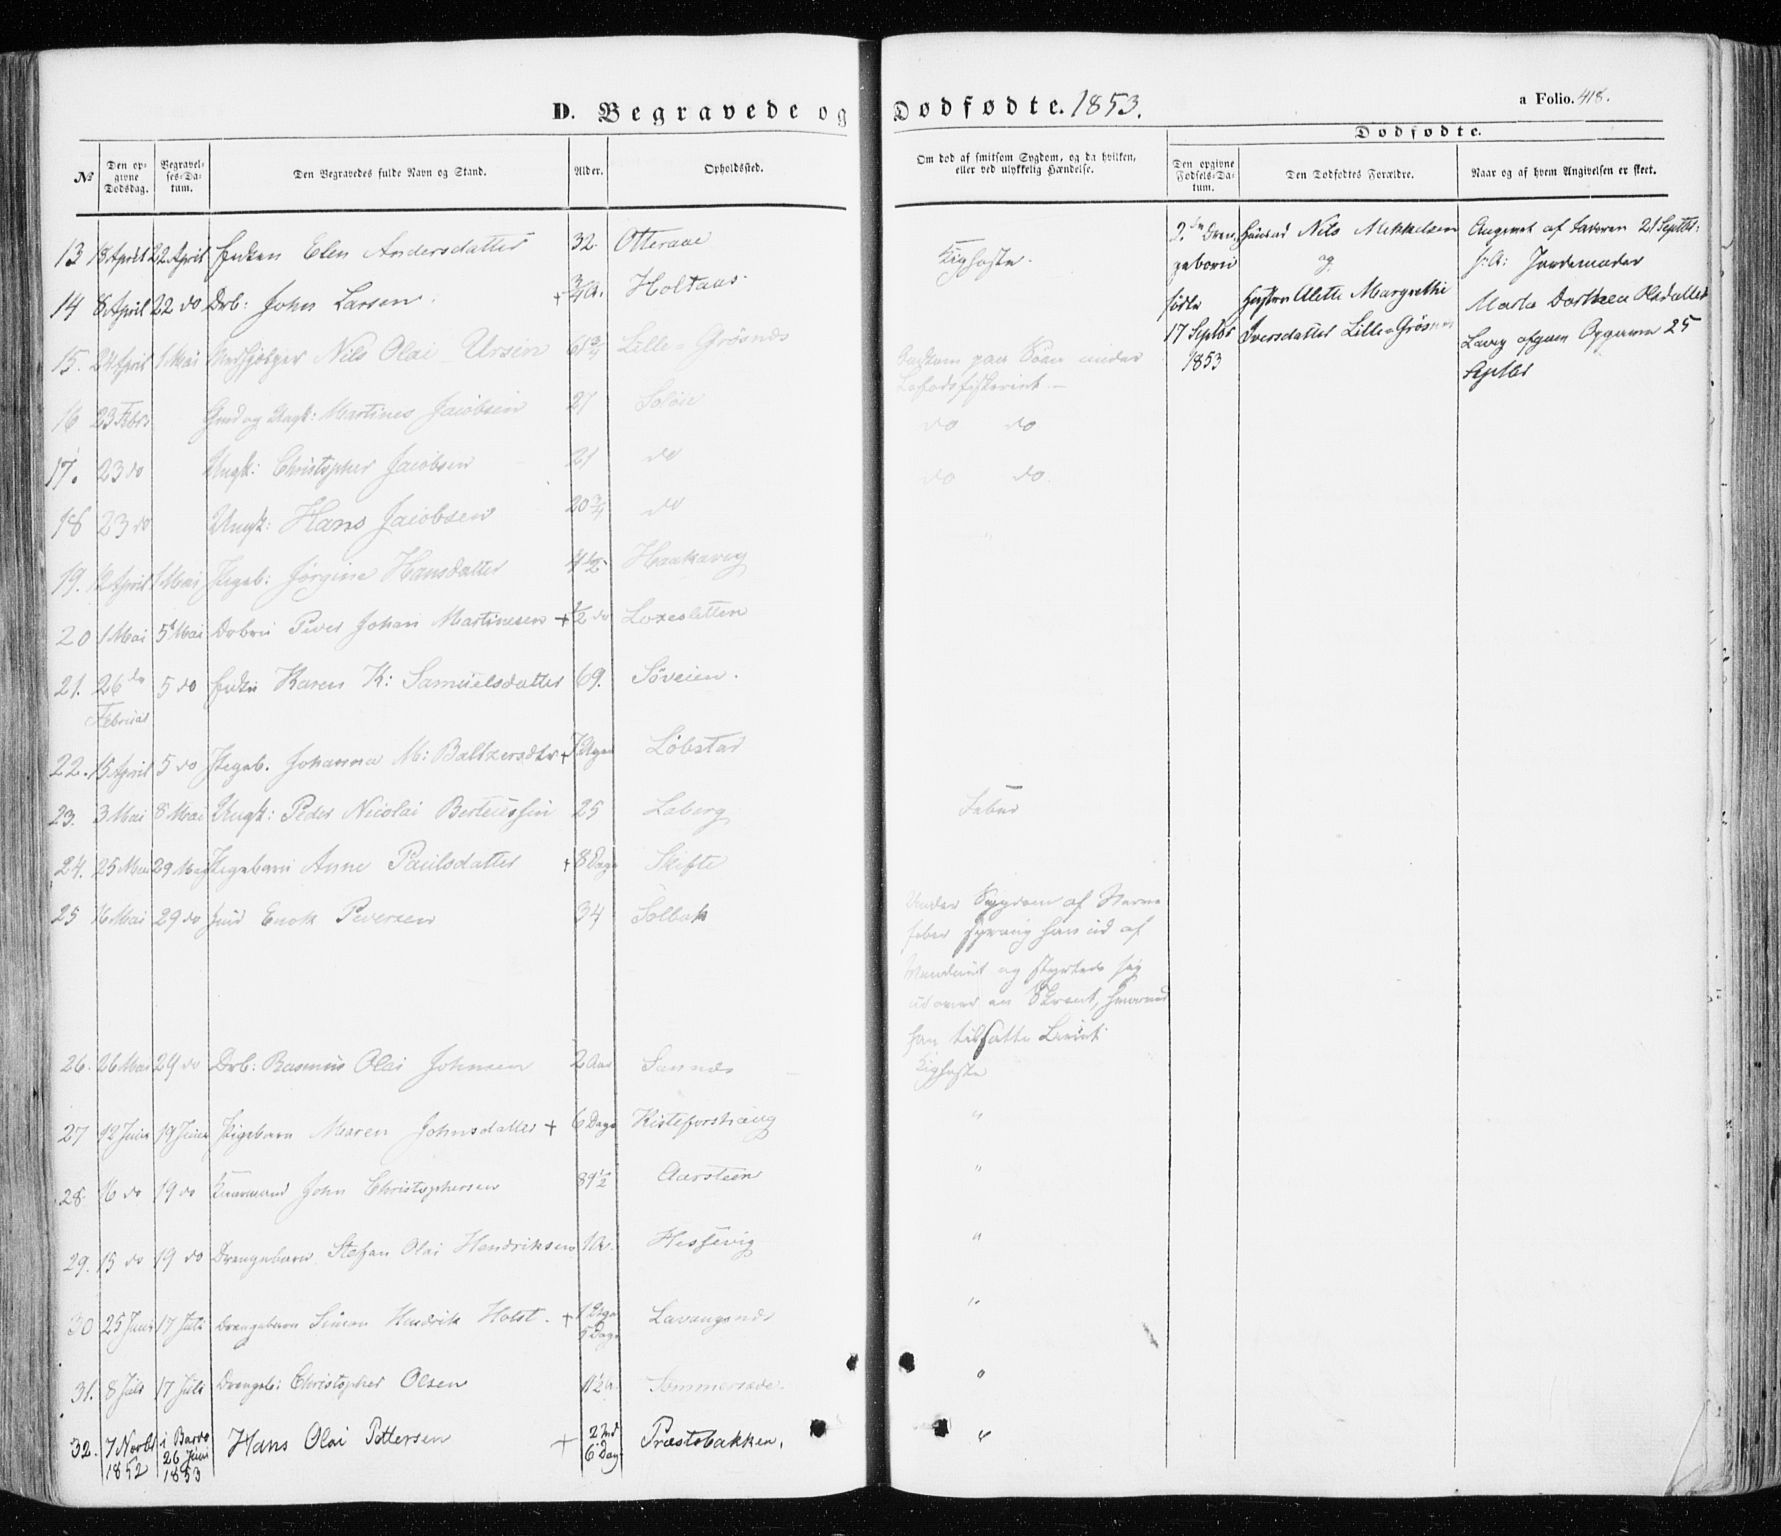 D. Begravede og Dødfødte. 1853.
a Folio. 418.
Dødfødte.
№
Den opgivne Dødsdag.
Begravelses-Datum.
Den Begravedes fulde Navn og Stand.
Alder.
Opholdssted.
Om død af smitsom Sygdom, og da hvilken, eller ved ulykkelig Hændelse.
Den opgivne Fødsels-Datum.
Den Dødfødtes Forældre.
Naar og af hvem Angivelsen er skeet.
13 18 April 22 April Elen Andersdatter 32. Otteraae
14 8 April 22 do Drb: John Larsen + 3/4 A. Holtaas Kighoste.
15. 24 April 1 Mai Nils Olai Ursin 61 3/4 Lille-Grøsnæs
16 23 Febr Martines Jacobsen 21 Soløie
17. 23 do Ungk: Christopher Jacobsen 21 do do do
18 23 do Ungk: Hans Jacobsen 20 3/4 do do do.
19. 12 April 1 Mai Pigeb: Jørgine Hansdatter 4 1/2 Haakavig
20 1 Mai 5t Mai Peder Johan Martinesen + 1/2 do Loxesletten
21. 26 de Februar 5 do Karen K: Samuelsdatter 69. Søveien.
22. 15 April 5 do Pigeb. Johanna M: Baltzersdtr + Løbstad
23. 3 Mai 8 Mai Ungk: Peder Nicolai Berteussen 25 Laberg Feber
24. 25 Mai 29 Mai Pigebarn Anne Paulsdatter + 8 Dage Skifte
25 16 Mai 29 do Enok Pedersen 34 Solbak
Under Sygdom af Nerve
feber sprang han ud af
Vinduet og styrtede sig
ud over en Skrent, hvorved
han tilsatte Livet.
26. 26 Mai 29 do Drb: Rasmus Olai Johnsen 2 Aar Sannæs Kighoste
27 12 Juni 19 Juni Pigebarn Maren Johnsdatter + 6 Dage Kisteforshaug "
28. 16 do 19 do John Christophersen 89 1/2 Aarsteen "
29. 15 do 19 do Drengebarn Stefan Olai Hendriksen 1 A. Hesfevig "
30 25 Juni 17 Juli Drengebarn Simon Hendrik Holst. + 1 Uge 5 Dage Lavangsnæs "
31. 8 Juli 17 Juli Drengeb: Christopher Olsen 1 1/2 A. Sommersæde. "
32. 7 Novbr 1852 i Bardo 26 Juni 1853 Hans Olai Pettersen + 2 Md 6 Dag Præstebakken. "
2. de Dreng
geboren
fødte
17 Septbr
1853
Huusmd Nils Mikkelsen
og
Hustru Alette Margrethe
Iversdatter Lille-Grøsnæs
Angivet af Faderen 21 Septbr:
s: A: Jordemoder
Marta Dorthea Olsdatter
Lavig afgav Opgaven 25
Septbr